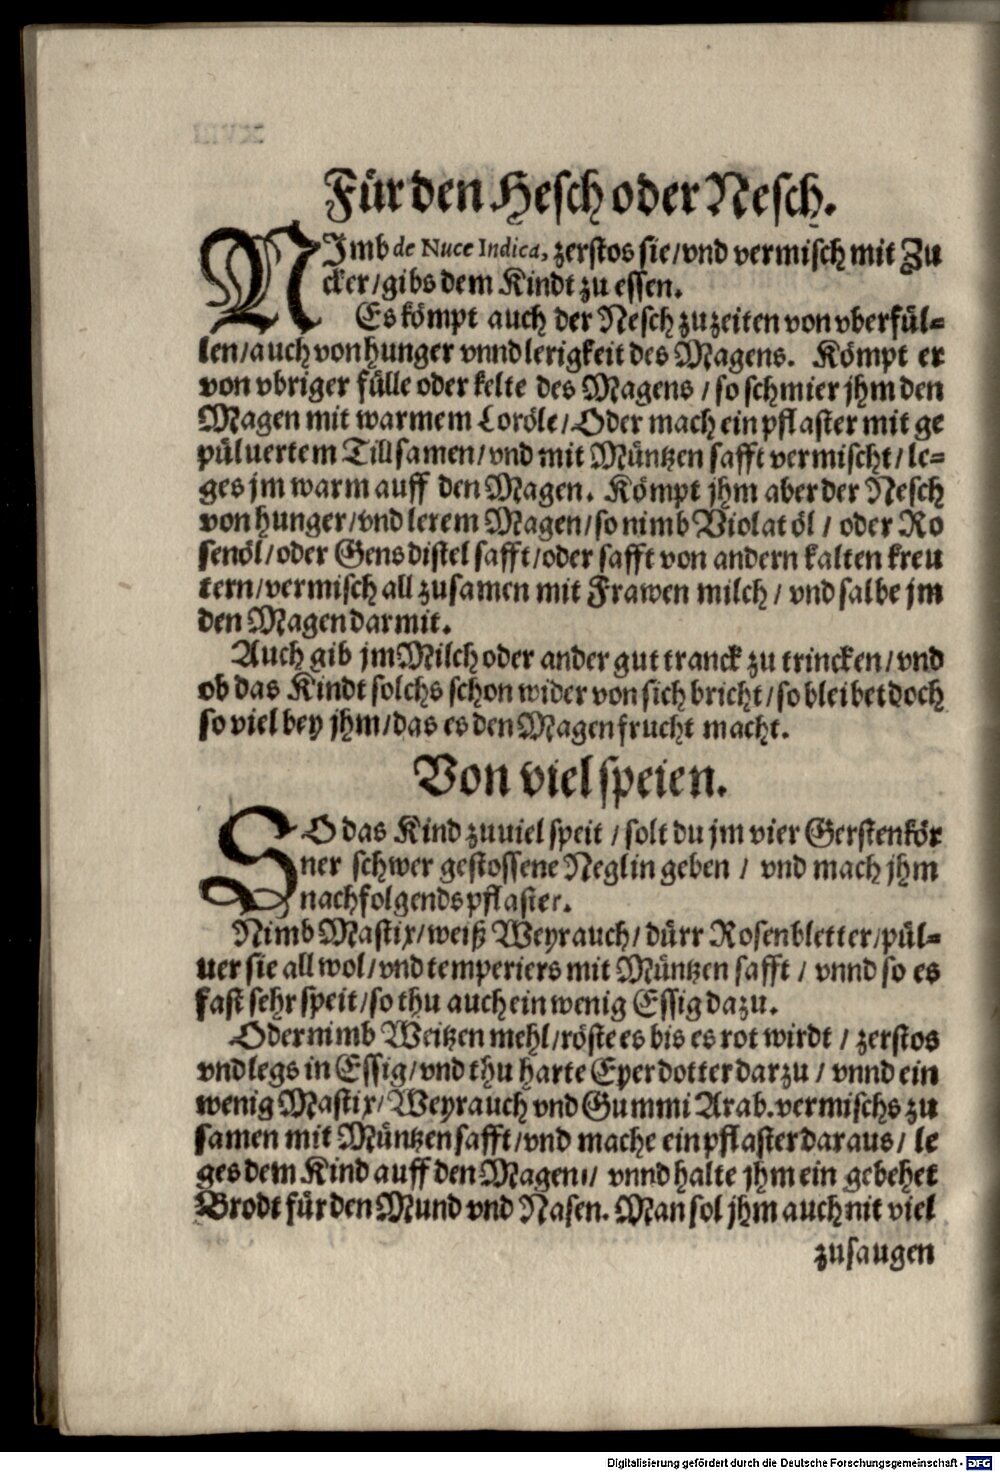 Für den Hesch oder Nesch.
NImb de Nuce Indica, zerstos sie/vnd vermisch mit Zu
cker/gibs dem Kindt zu essen.
Es kömpt auch der Nesch zuzeiten von vberfül=
len/auch von hunger vnnd lerigkeit des Magens. Kömpt er
von vbriger fülle oder kelte des Magens / so schmier jhm den
Magen mit warmem Loröle/Oder mach ein pflaster mit ge
püluertem Tillsamen/vnd mit Müntzen safft vermischt/le=
ges jm warm auff den Magen. Kömpt jhm aber der Nesch
von hunger/vnd lerem Magen/so nimb Violat öl / oder Ro
senöl/oder Gensdistel safft/oder safft von andern kalten kreu
tern/vermisch all zusamen mit Frawen milch / vnd salbe jm
den Magen darmit.
Auch gib jm Milch oder ander gut tranck zu trincken/vnd
ob das Kindt solchs schon wider von sich bricht/so bleibet doch
so viel bey jhm/das es den Magen frucht macht.
Von viel speien.
SO das Kind zuuiel speit / solt du jm vier Gerstenkör
ner schwer gestossene Neglin geben / vnd mach jhm
nachfolgends pflaster.
Nimb Mastix/weiß Weyrauch/dürr Rosenbletter/pül=
uer sie all wol/vnd temperiers mit Müntzen safft / vnnd so es
fast sehr speit/so thu auch ein wenig Essig dazu.
Oder nimb Weitzen mehl/röste es bis es rot wirdt / zerstos
vnd legs in Essig/vnd thu harte Eyerdotter darzu / vnnd ein
wenig Mastix/Weyrauch vnd Gummi Arab. vermischs zu
samen mit Müntzen safft/vnd mache ein pflaster daraus/ le
ges dem Kind auff den Magen// vnnd halte jhm ein gebehet
Brodt für den Mund vnd Nasen. Man sol jhm auch nit viel
zusaugen
Digitalisierung gefördert durch die Deutsche Forschungsgemeinschaft - DFG